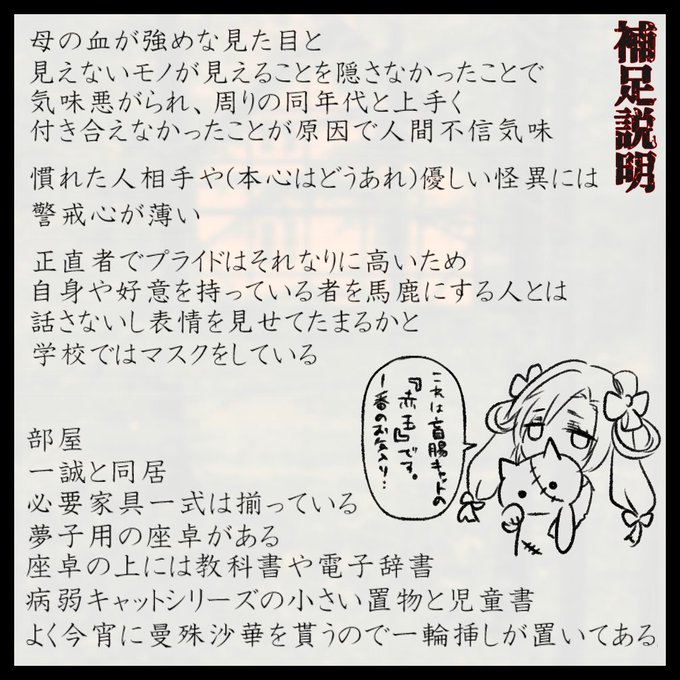 補足説明
母の血が強めな見た目と
見えないモノが見えることを隠さなかったことで
気味悪がられ、周りの同年代と上手く
付き合えなかったことが原因で人間不信気味
慣れた人相手や(本心はどうあれ)優しい怪異には
警戒心が薄い
正直者でプライドはそれなりに高いため
自身や好意を持っている者を馬鹿にする人とは
話さないし表情を見せてたまるかと
学校ではマスクをしている
これは盲腸キャットの
『赤玉』です。
1番のお気入り…
部屋
一誠と同居
必要家具一式は揃っている
夢子用の座卓がある
座卓の上には教科書や電子辞書
病弱キャットシリーズの小さい置物と児童書
よく今宵に曼殊沙華を貰うので一輪挿しが置いてある